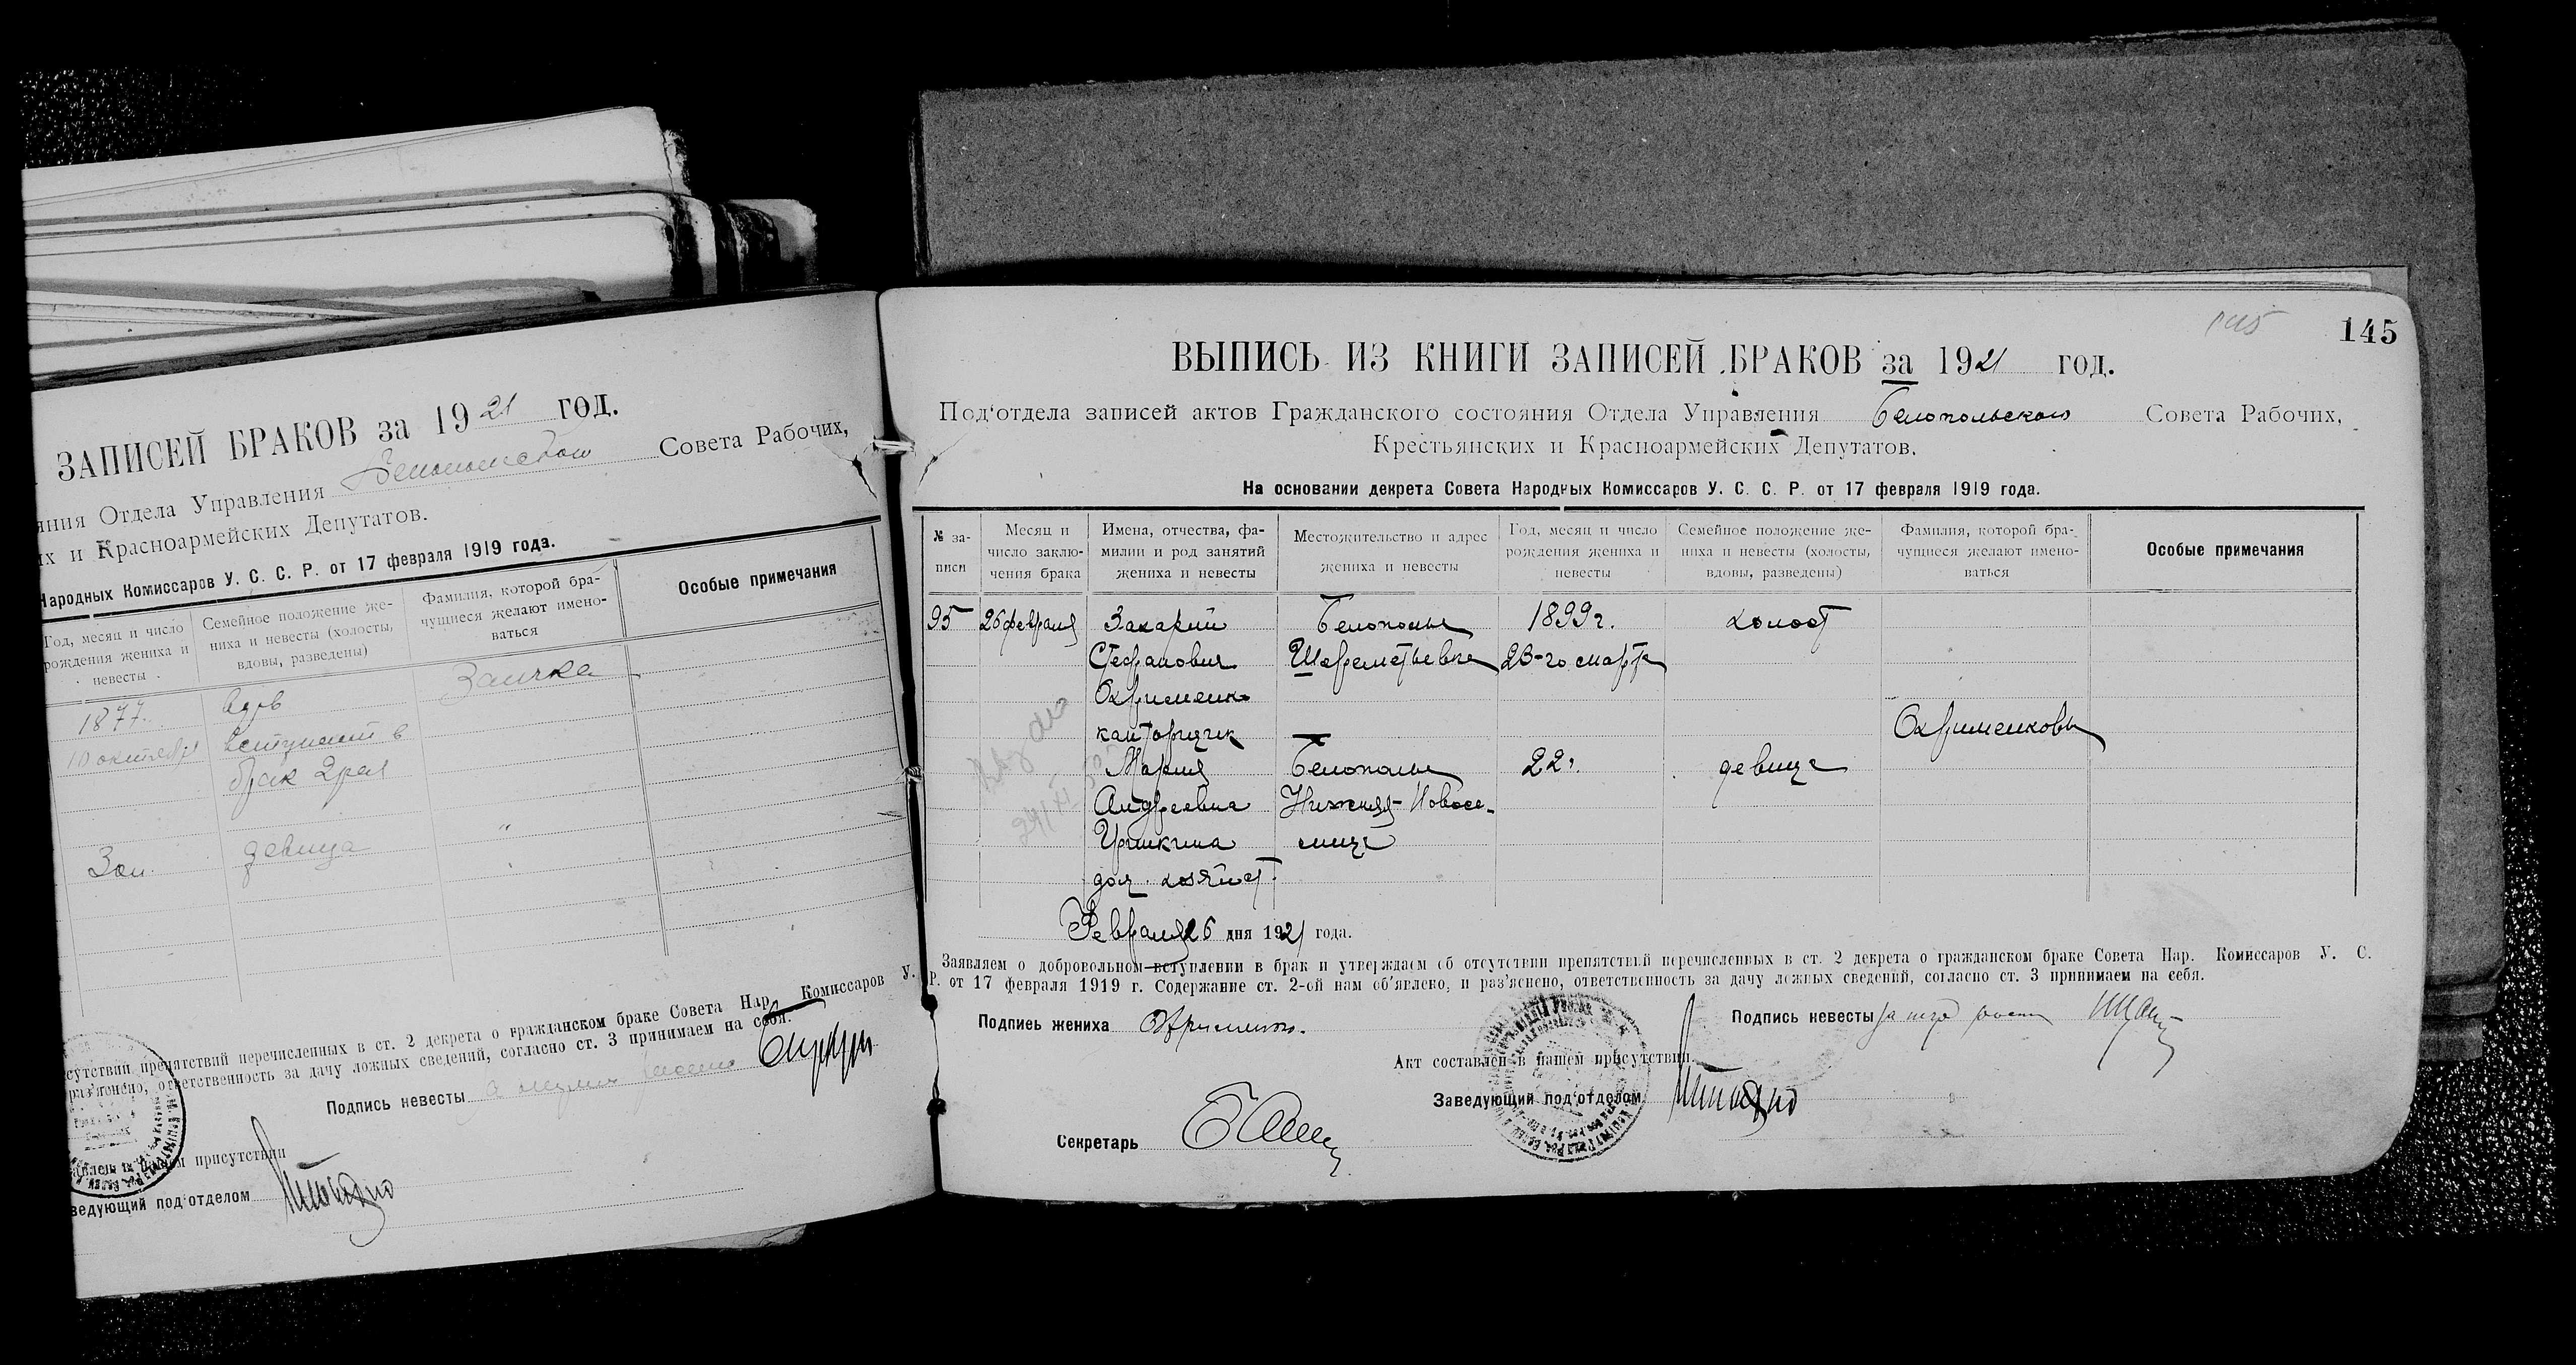 ЗАПИСЕЙ БРАКОВ за 1921 год.
яния Отдела Управления Белопольского Совета Рабочих,
их и Красноармейских Депутатов.
Народных Комиссаров У. С. С. Р. от 17 февраля 1919 года.
Год, месяц и число рождения жениха и невесты
Семейное положение жениха и невесты (холосты, вдовы, разведены)
Фамилия, которой брачущиеся желают именоваться
Особые примечания
1877. вдов Заичка
10 октября вступает в
брак 2 раз
30 л. девица "
сутствии препятствий перечисленных в ст. 2 декрета о гражданском браке Совета Нар. Комиссаров У.
раз'яснено, ответственность за дачу ложных сведений, согласно ст. 3 принимаем на себя.
Подпись невесты
авлен в нашем присутствии
ведующий под'отделом
145
145
ВЫПИСЬ ИЗ КНИГИ ЗАПИСЕЙ БРАКОВ за 1921 год.
Под'отдела записей актов Гражданского состояния Отдела Управления Белопольского Совета Рабочих,
Крестьянских и Красноармейских Депутатов.
На основании декрета Совета Народных Комиссаров У. С. С. Р. от 17 февраля 1919 года.
№ записи
Месяц и число заключения брака
Имена, отчества, фамилии и род занятий жениха и невесты
Местожительство и адрес жениха и невесты
Год, месяц и число рождения жениха и невесты
Семейное положение жениха и невесты (холосты, вдовы, разведены)
Фамилия, которой брачущиеся желают именоваться
Особые примечания
95 26 февраля Захарий Белополье 1899 г. холост
Стефанович Шереметьевка 23-го марта
Охрименко
канторщик Охрименковы
Мария Белополье 22 г. девица
Андреевна Нижняя-Новосе-
лица
дом. хозяйст.
Февраля 26 дня 1921 года.
Заявляем о добровольном вступлении в брак и утверждаем об отсутствии препятствий перечисленных в ст. 2 декрета о гражданском браке Совета Нар. Комиссаров У. С.
Р. от 17 февраля 1919 г. Содержание ст. 2-ой нам об'явлено, и раз'яснено, ответственность за дачу ложных сведений, согласно ст. 3 принимаем на себя.
Подпись жениха Охрименко.
Подпись невесты
Акт составлен в нашем присутствии
Заведующий под'отделом
Секретарь